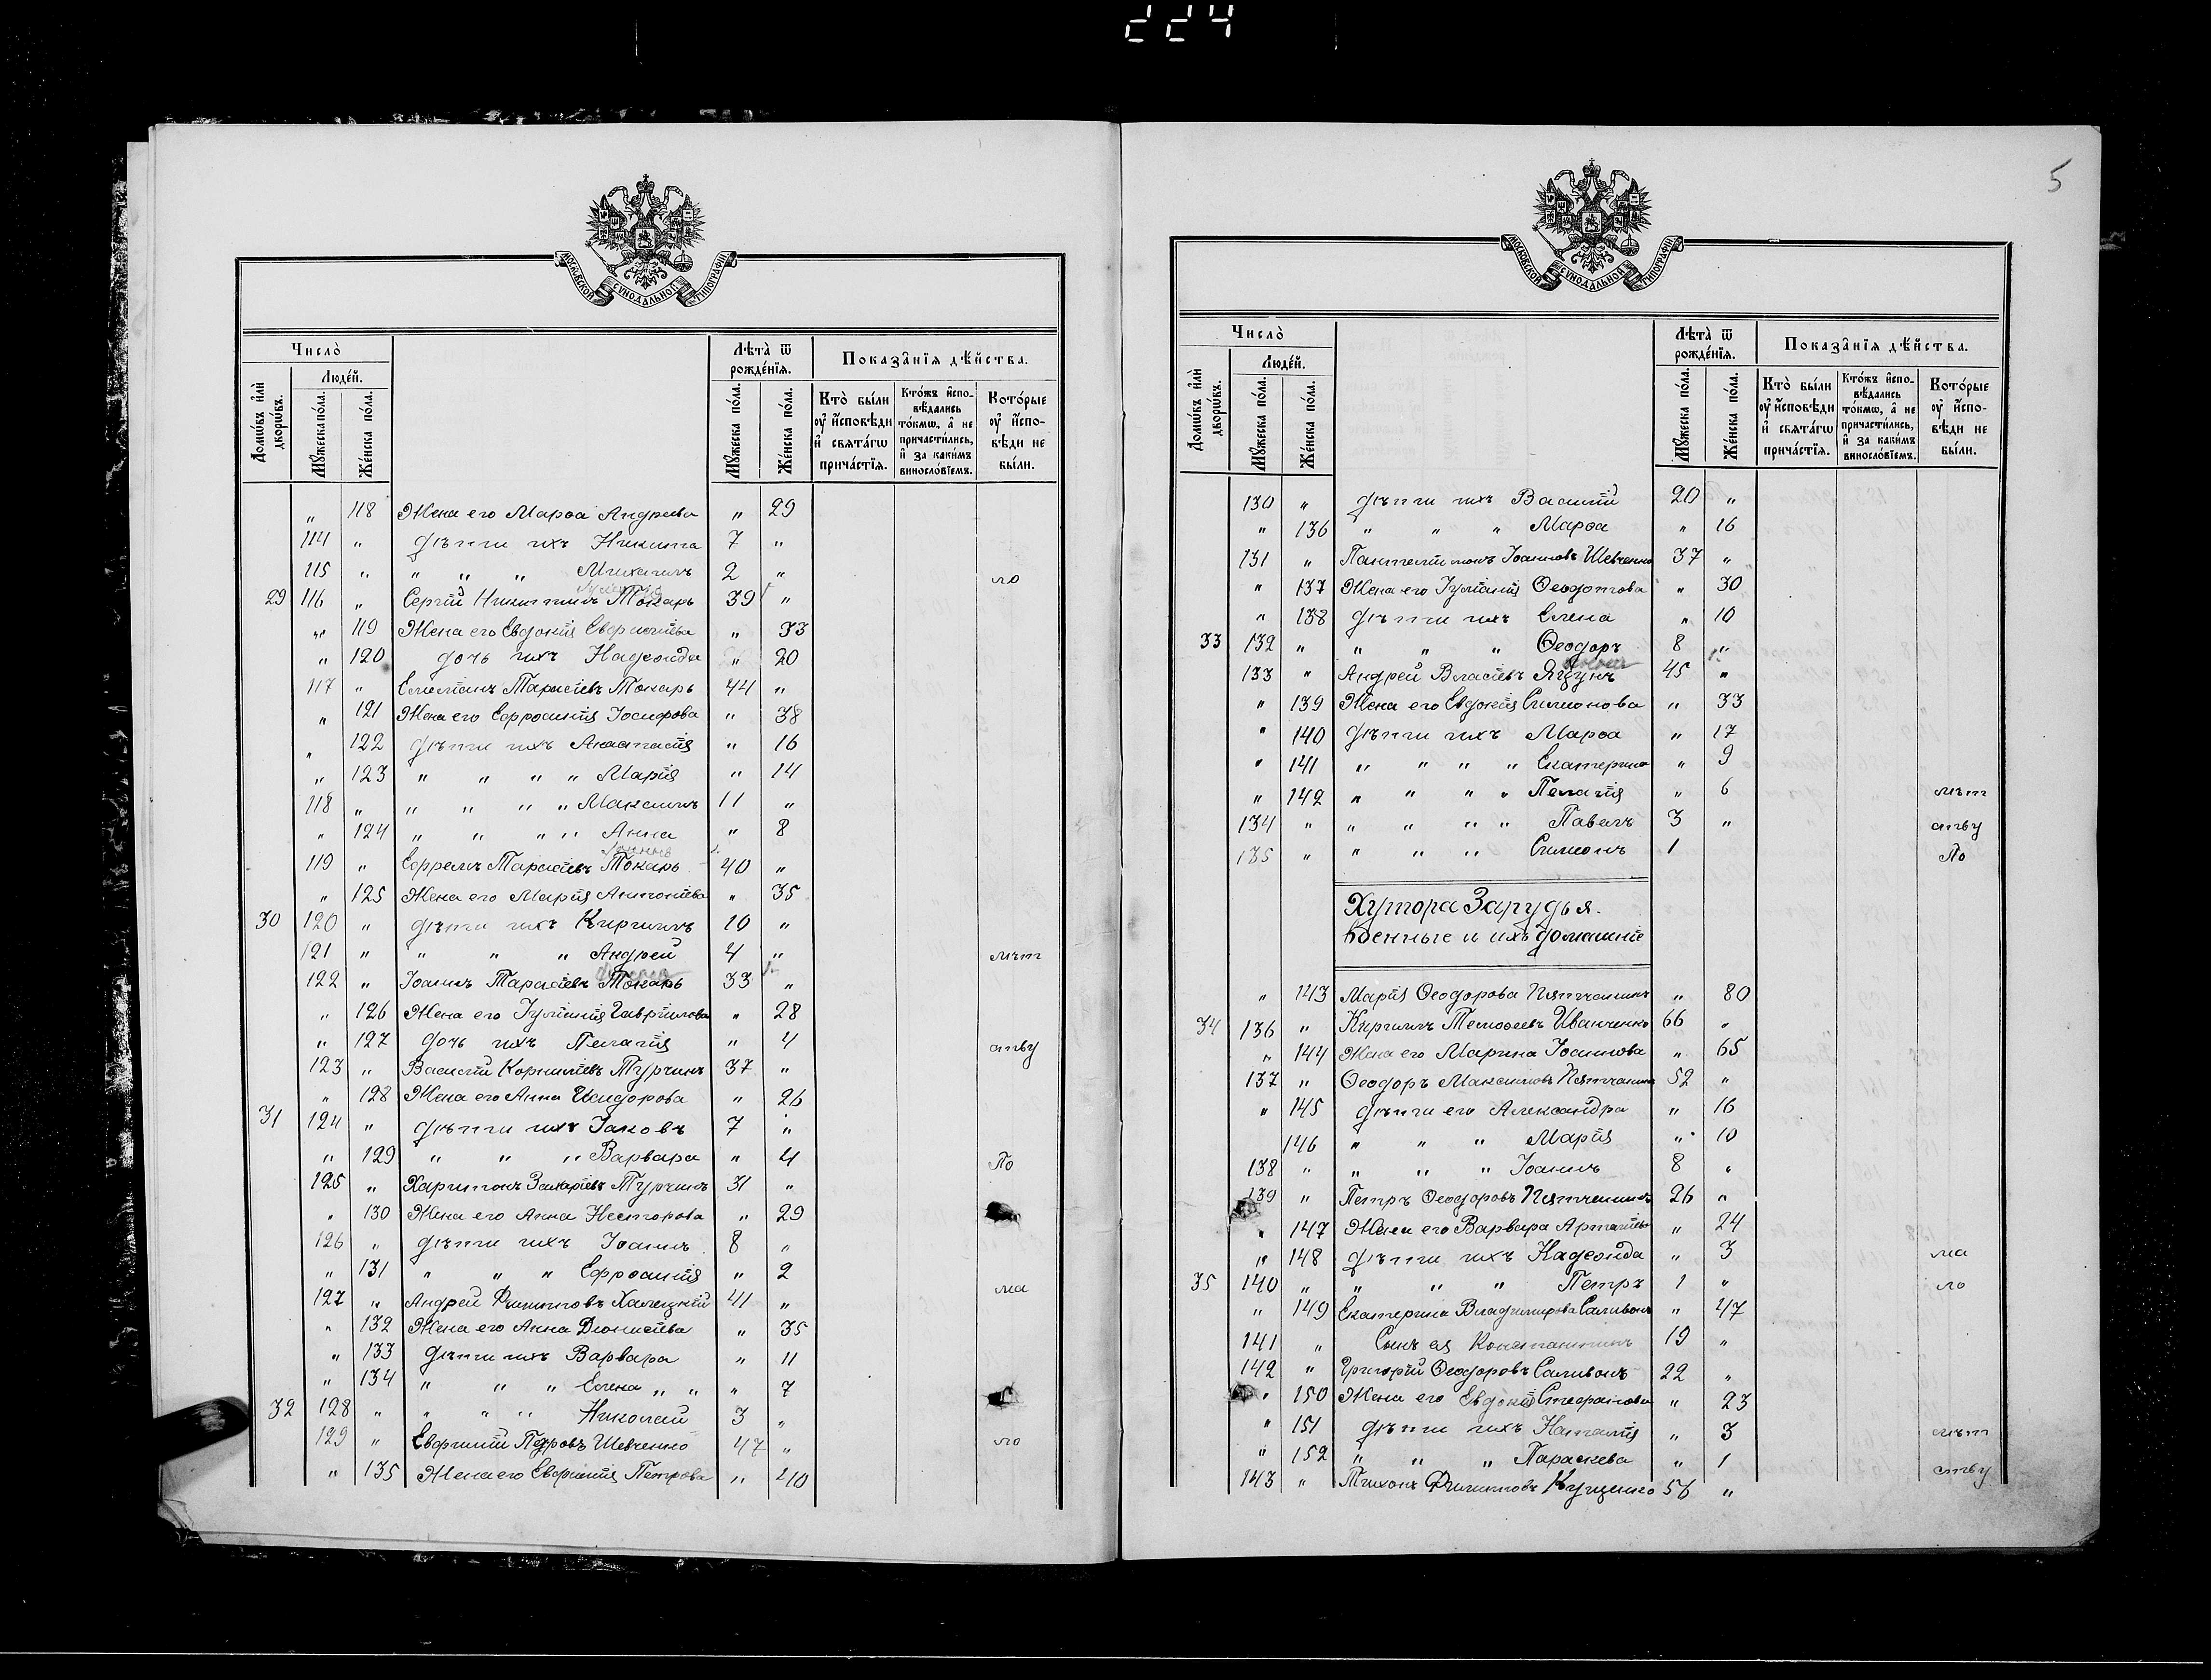 224
МОСКОВСКОЙ СѴНОДАЛЬНОЙ ТИПОГРАФІИ
Число̀
Люде́й.
Домѡ́въ и҆лѝ дворѡ́въ.
Мꙋ́жеска по́ла.
Же́нска по́ла.
Лѣта̀ ѿ рожде́нїѧ.
Мꙋ́жеска по́ла.
Же́нска по́ла.
Показа̑нїѧ дѣ́йства.
Кто̀ бы́ли оу҆ и҆сповѣди и҆ свѧта́гѡ прича́стїѧ.
Кто́жъ и҆сповѣдались то́кмѡ, а҆ не причасти́лись, и҆ за каки́мъ винословїемъ.
Кото́рые оу҆ и҆сповѣди не бы́ли.
" 118 Жена его Марѳа Андреева " 29
114 " дѣти ихъ Никита 7 "
115 " " " " Михаилъ 2 " ло
29 116 " Сергій Никитинъ Токарь 39 "
" 119 Жена его Евдокія " 33
" 120 дочь ихъ Надежда " 20
117 " Емеліанъ Тарасіевъ Токарь 44 "
" 121 Жена его Евфросинія Іосифова " 38
" 122 дѣти ихъ Анастасія " 16
" 123 " " " " Марія " 14
118 " " " " " Максимъ 11 "
" 124 " " " " Анна " 8
119 " Ефремъ Тарасіевъ Токарь 40 "
" 125 Жена его Марія Антоніева " 35
30 120 " дѣти ихъ Кириллъ 10 "
121 " " " " Андрей 4 " лѣт
122 " Іоаннъ Тарасіевъ Токарь 33 "
" 126 Жена его Іуліанія Гавриилова " 28
" 127 дочь ихъ Пелагія " 4 ству
123 " Василій Корниліевъ Турчинъ 37 "
" 128 Жена его Анна Исидорова " 26
31 124 " дѣти ихъ Іаковъ 7 "
" 129 " " " Варвара " 4 По
125 " Харитонъ Захаріевъ Турчинъ 31 "
" 130 Жена его Анна Несторова " 29
126 " дѣти ихъ Іоаннъ 8 "
" 131 " " " Ефросинія " 2
127 " Андрей Филипповъ Халецкій 41 " ма
" 132 Жена его Анна Діонисіева " 35
" 133 дѣти ихъ Варвара " 11
" 134 " " " Елена " " " 7
32 128 " " " " Николай 3 "
129 " Евфимій Петровъ Шевченко 47 " ло
" 135 Жена его Евфимія Петрова " 40
5
МОСКОВСКОЙ СѴНОДАЛЬНОЙ ТИПОГРАФІИ
Число̀
Люде́й.
Домѡ́въ и҆лѝ дворѡ́въ.
Мꙋ́жеска по́ла.
Же́нска по́ла.
Лѣта̀ ѿ рожде́нїѧ.
Мꙋ́жеска по́ла.
Же́нска по́ла.
Показа̑нїѧ дѣ́йства.
Кто̀ бы́ли оу҆ и҆сповѣди и҆ свѧта́гѡ прича́стїѧ.
Кто́жъ и҆сповѣдались то́кмѡ, а҆ не причасти́лись, и҆ за каки́мъ винословїемъ.
Кото́рые оу҆ и҆сповѣди не бы́ли.
130 " дѣти ихъ Василій 20 "
" 136 " " " Марѳа " 16
131 " Пантелиімонъ Іоанновъ Шевченко 37 "
" 137 Жена его Іуліанія Ѳеодотова " 30
" 138 дѣти ихъ Елена " 10
33 132 " " " " Ѳеодоръ 8 "
133 " Андрей Власіевъ Яцунъ 45 "
" 139 Жена его Евдокія Симонова " 33
" 140 дѣти ихъ Марѳа " 17
" 141 " " " " Екатерина " 9
" 142 " " " " Пелагія " 6 лѣт
134 " " " " " Павелъ 3 " ству
135 " " " " Симеонъ 1 По
Хутора Зарудья.
Военные и ихъ домашніе
" 143 Марія Ѳеодорова " 80
34 136 " Кириллъ Тимоѳеевъ Иванченко 66 "
" 144 Жена его Марина Іоаннова " 65
137 " Ѳеодоръ Максимовъ 52 "
" 145 дѣти его Александра " 16
146 " " " Марія " 10
138 " " " " Іоаннъ 8 "
139 " Петръ Ѳеодоровъ 26 "
" 147 Жена его Варвара " 24
" 148 дѣти ихъ Надежда " 3 ма
35 140 " " " " Петръ 1 " ло
" 149 Екатерина Владимирова Саливонъ " 47
141 " Сынъ ея Константинъ 19 "
142 " Григорій Ѳеодоровъ Саливонъ 22 "
" 150 Жена его Евдокія Стефанова " 23
" 151 дѣти ихъ Наталія " 3 лѣт
" 152 " " " Параскева " 1 ству
143 " Тихонъ Филипповъ Куценко 56 "